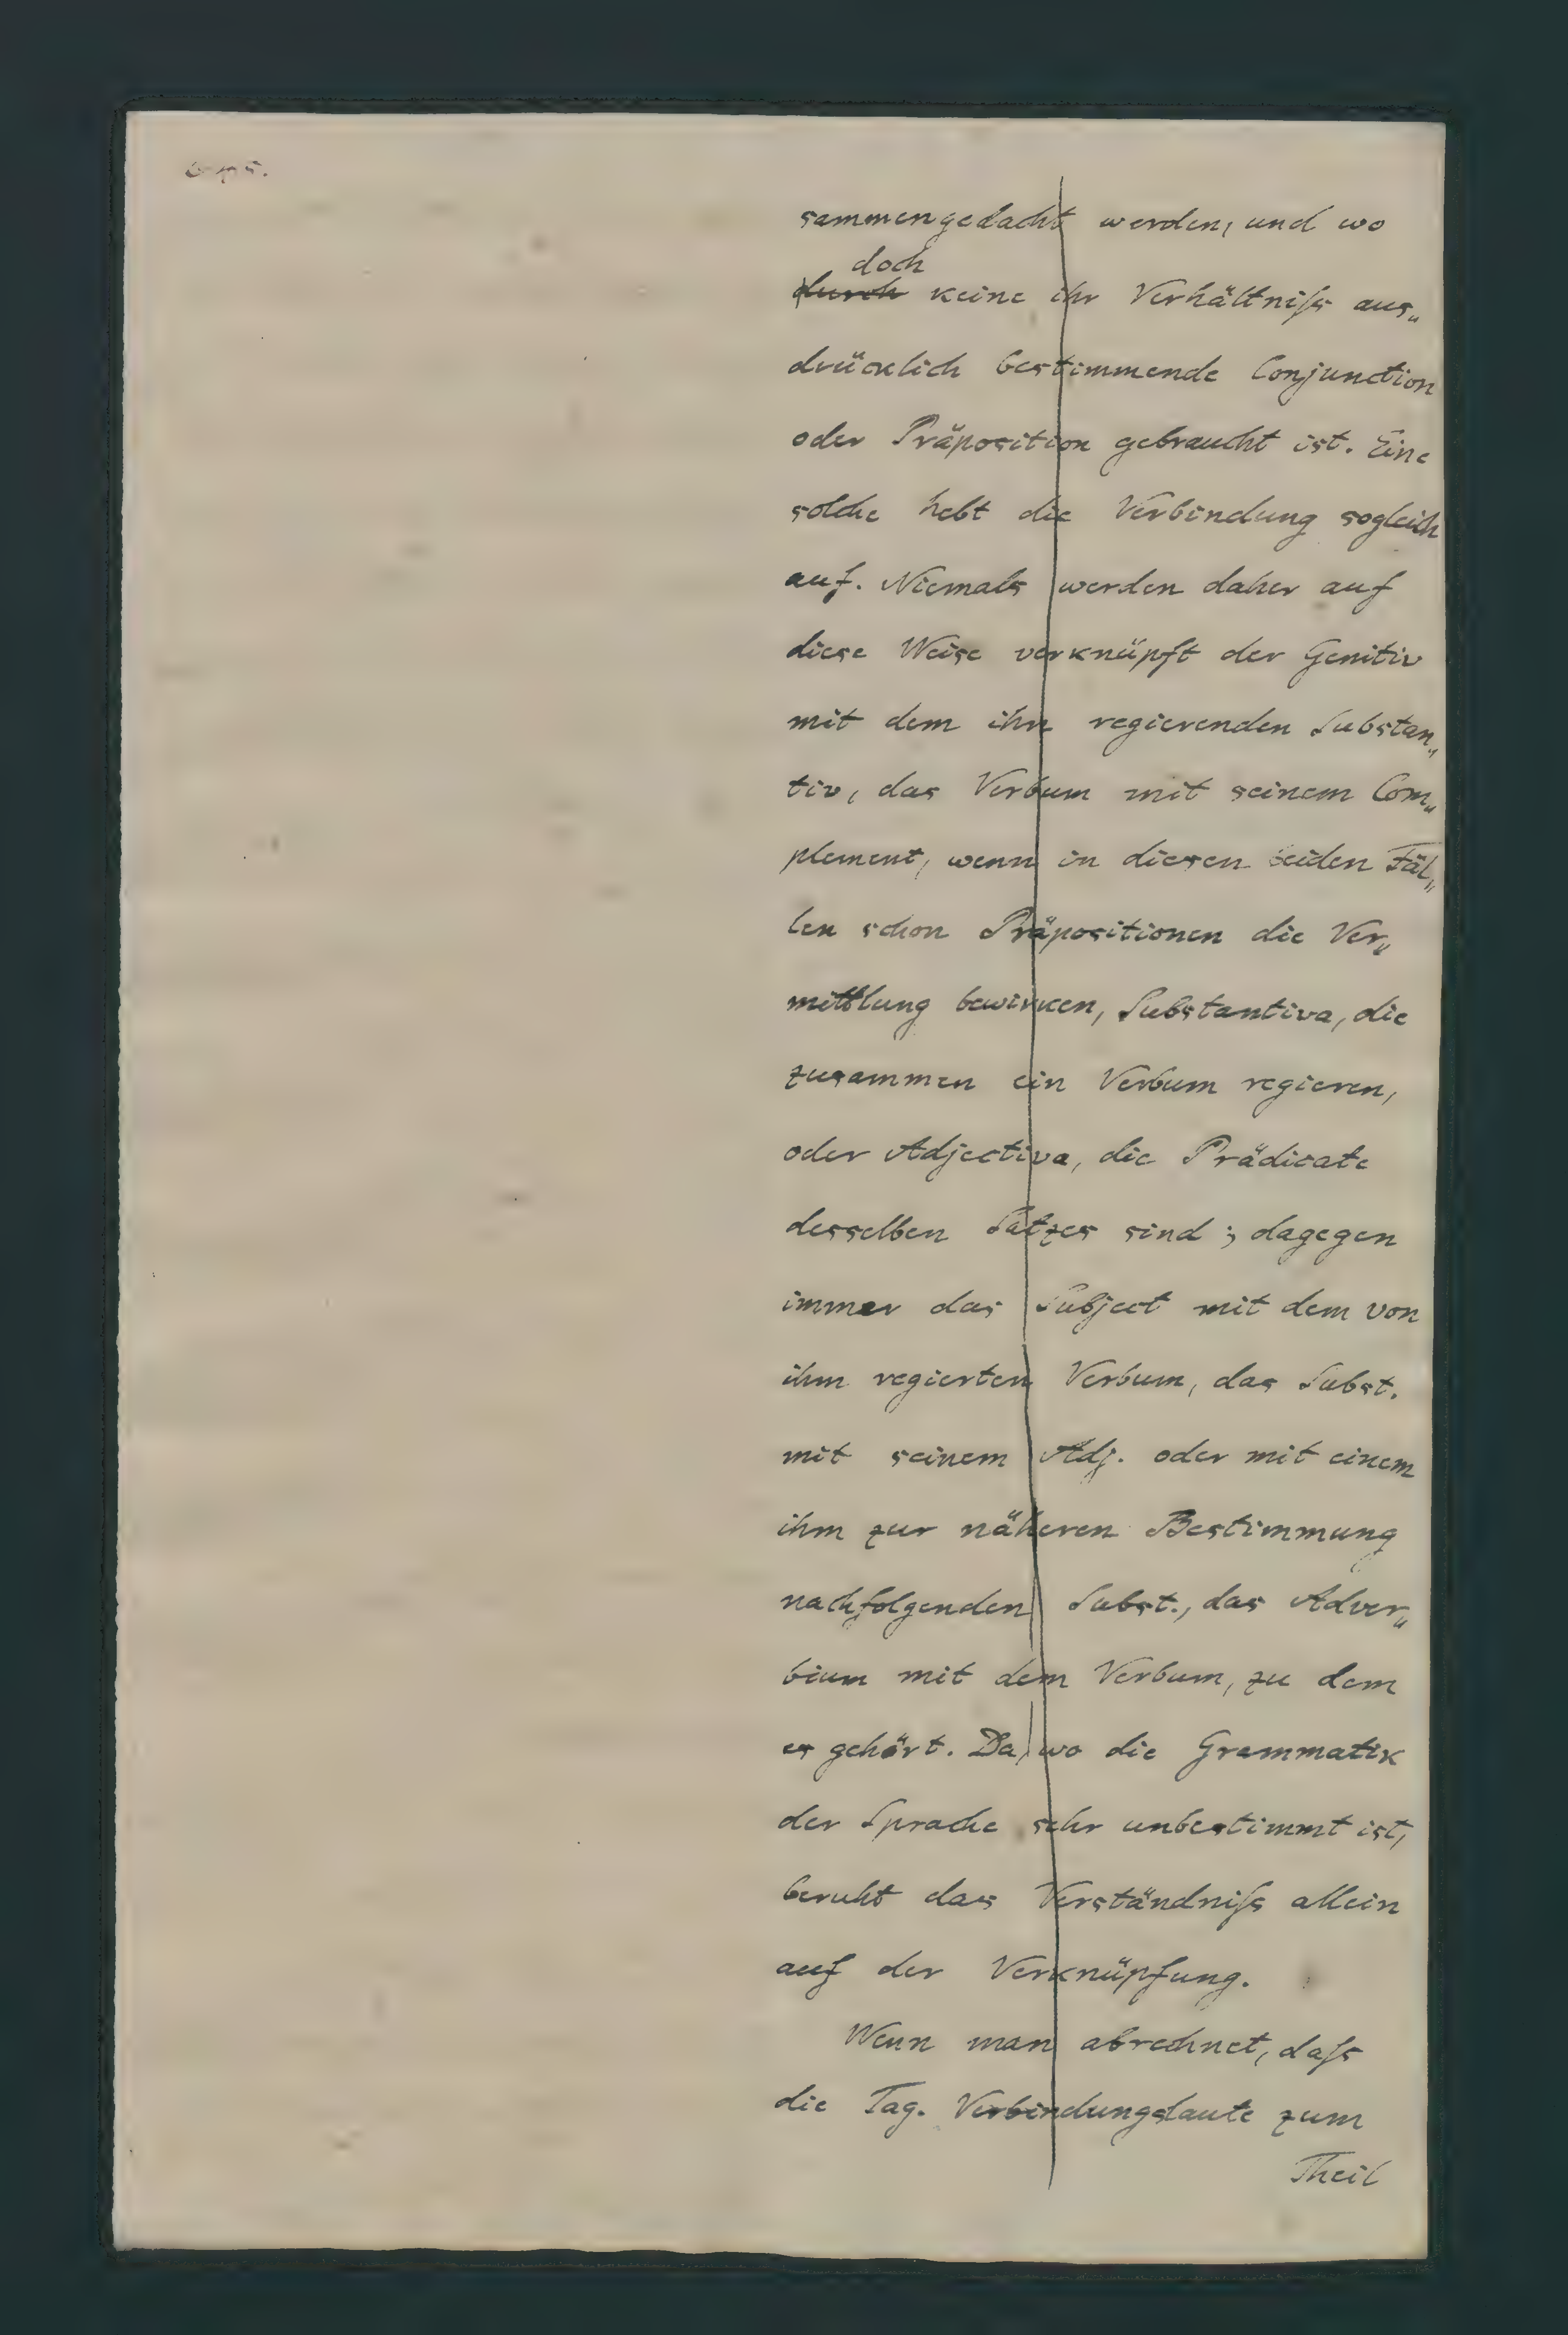 sammengedacht werden, und wo
doch
durch keine ihr Verhältniſs aus„
drücklich bestimmende Conjunction
oder Präposition gebraucht ist. Eine
solche hebt die Verbindung sogleich
auf. Niemals werden daher auf
diese Weise verknüpft der Genitiv
mit dem ihn regierenden Substan„
tiv, das Verbum mit seinem Com„
plement, wenn in diesen beiden Fäl„
len schon Präpositionen die Ver„
mittlung bewirken, Substantiva, die
zusammen ein Verbum regieren,
oder Adjectiva, die Prädicate
desselben Satzes sind; dagegen
immer das Subject mit dem von
ihm regierten Verbum, das Subst.
mit seinem Adj. oder mit einem
ihm zur näheren Bestimmung
nachfolgenden Subst., das Adver„
bium mit dem Verbum, zu dem
es gehört. Da, wo die Grammatik
der Sprache sehr unbestimmt ist,
beruht das Verständniſs allein
auf der Verknüpfung.
Wenn man abrechnet, daſs
die Tag. Verbindungslaute zum
Theil